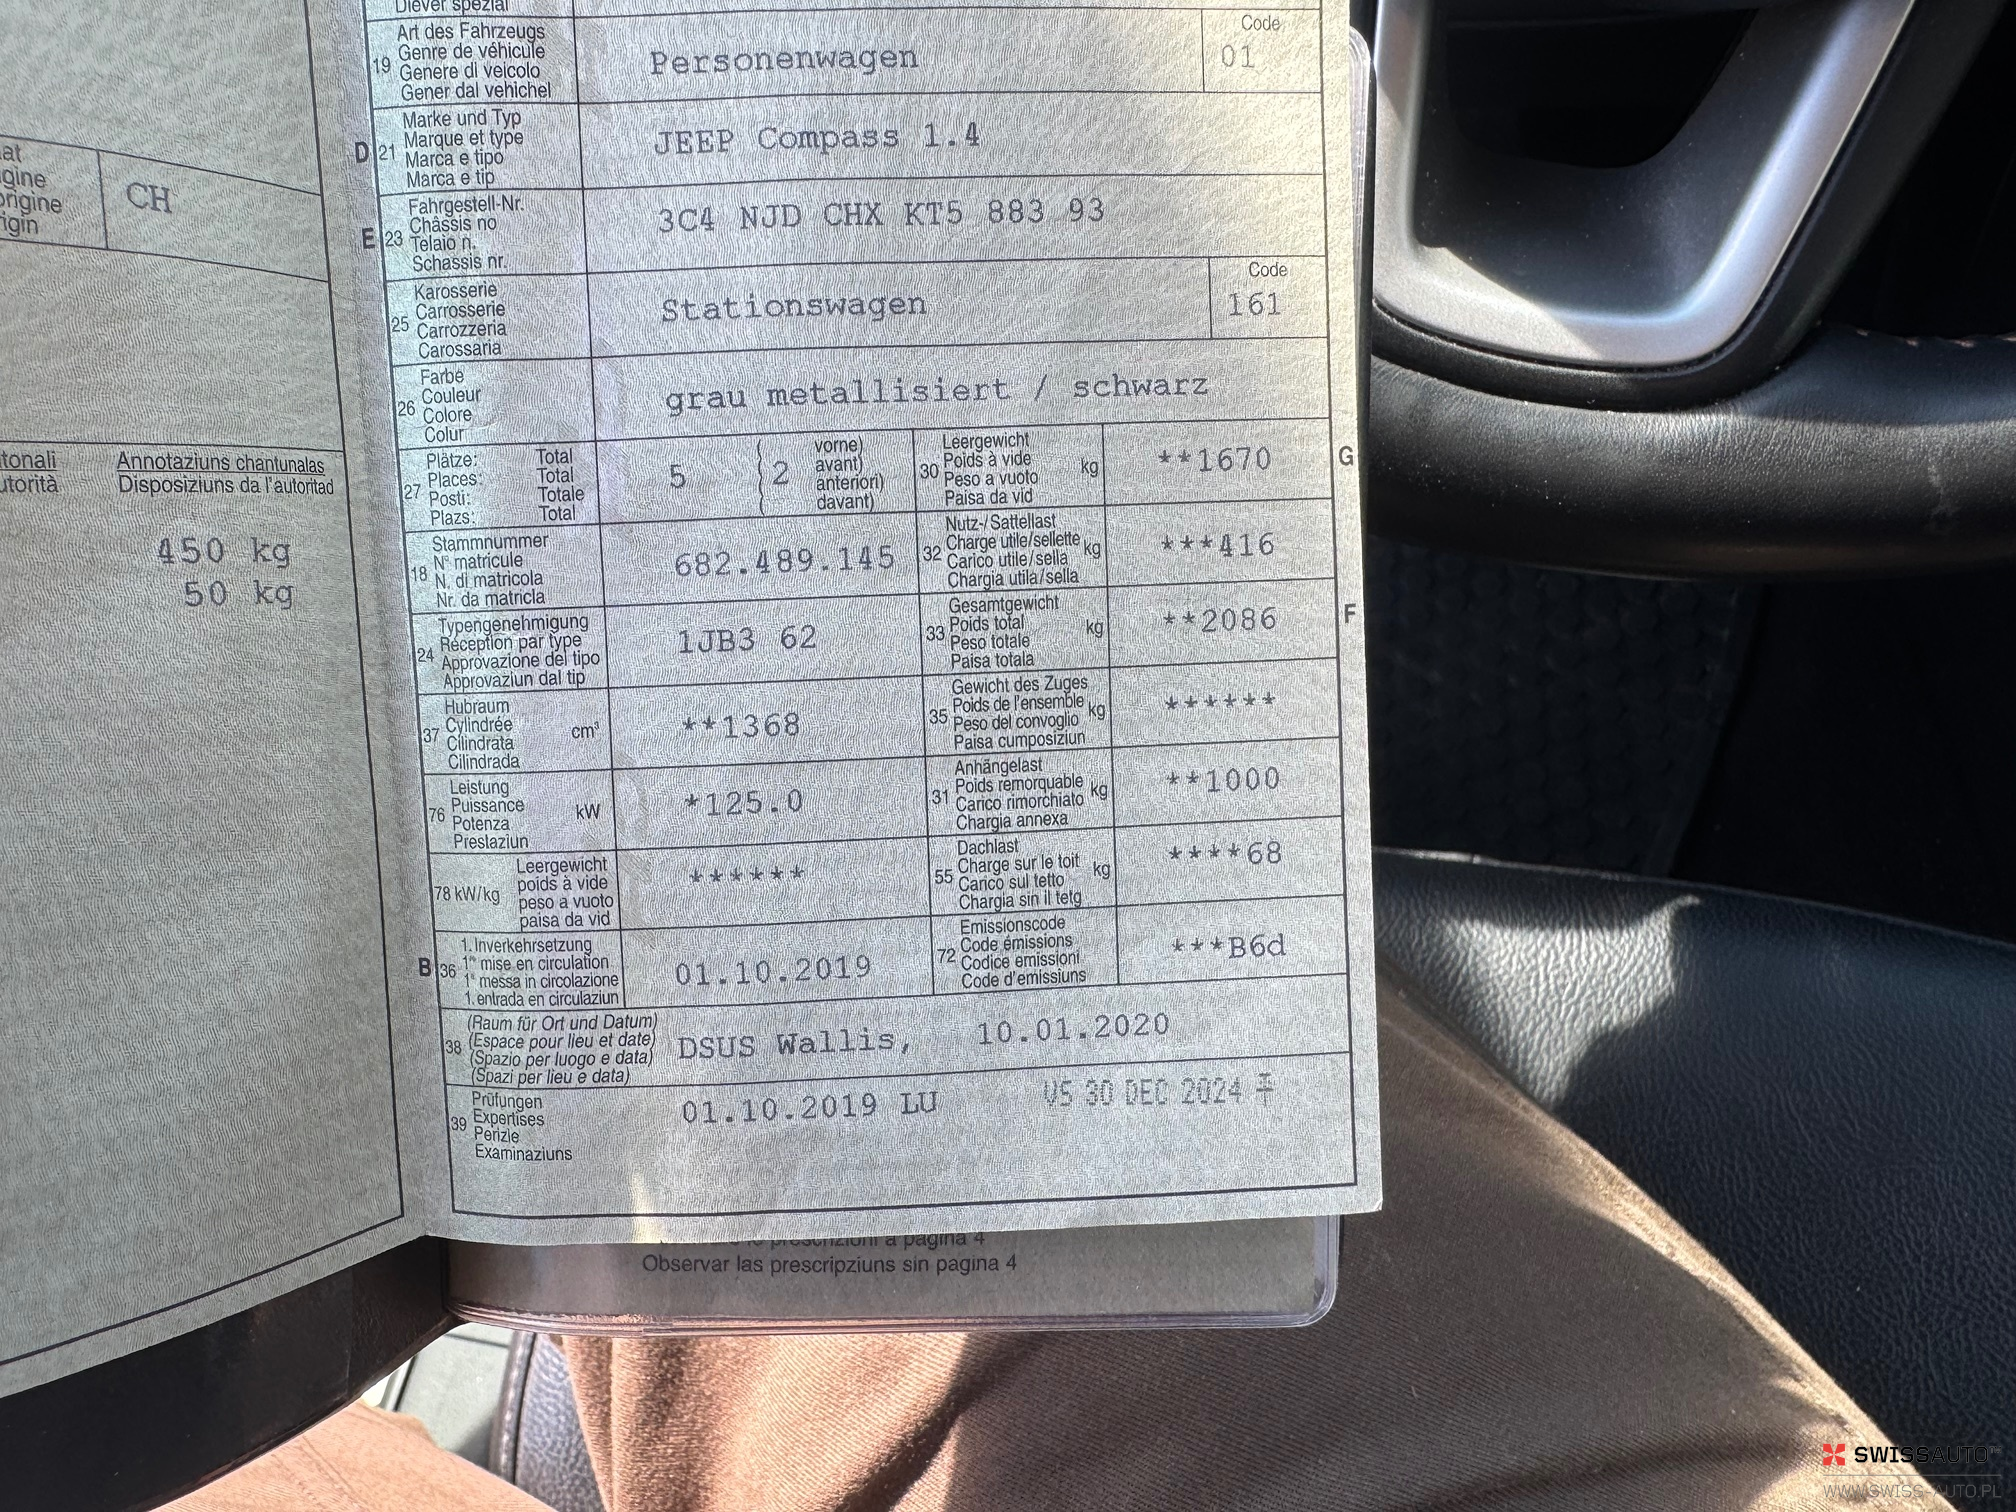 Diever spezial
19 Art des Fahrzeugs
Genre de véhicule
Genere di veicolo
Gener dal vehichel
Personenwagen
Code
01
D 21 Marke und Typ
Marque et type
Marca e tipo
Marca e tip
JEEP Compass 1.4
E 23 Fahrgestell-Nr.
Châssis no
Telaio n.
Schassis nr.
3C4 NJD CHX KT5 883 93
25 Karosserie
Carrosserie
Carrozzeria
Carossaria
Stationswagen
Code
161
26 Farbe
Couleur
Colore
Colur
grau metallisiert / schwarz
27 Plätze: Total
Places: Total
Posti: Totale
Plazs: Total
5
2
vorne)
avant)
anteriori)
davant)
30 Leergewicht
Poids à vide
Peso a vuoto
Paisa da vid
kg
**1670
G
18 Stammnummer
N° matricule
N. di matricola
Nr. da matricla
682.489.145
32 Nutz-/Sattellast
Charge utile/sellette
Carico utile/sella
Chargia utila/sella
kg
***416
24 Typengenehmigung
Réception par type
Approvazione del tipo
Approvaziun dal tip
1JB3 62
33 Gesamtgewicht
Poids total
Peso totale
Paisa totala
kg
**2086
F
37 Hubraum
Cylindrée
Cilindrata
Cilindrada
cm³
**1368
35 Gewicht des Zuges
Poids de l'ensemble
Peso del convoglio
Paisa cumposiziun
kg
******
76 Leistung
Puissance
Potenza
Prestaziun
kW
*125.0
31 Anhängelast
Poids remorquable
Carico rimorchiato
Chargia annexa
kg
**1000
78 kW/kg
Leergewicht
poids à vide
peso a vuoto
paisa da vid
******
55 Dachlast
Charge sur le toit
Carico sul tetto
Chargia sin il tetg
kg
****68
B 36 1. Inverkehrsetzung
1re mise en circulation
1a messa in circolazione
1. entrada en circulaziun
01.10.2019
72 Emissionscode
Code émissions
Codice emissioni
Code d'emissiuns
***B6d
38 (Raum für Ort und Datum)
(Espace pour lieu et date)
(Spazio per luogo e data)
(Spazi per lieu e data)
DSUS Wallis, 10.01.2020
39 Prüfungen
Expertises
Perizie
Examinaziuns
01.10.2019 LU
VS 30 DEC 2024
prescrizioni a pagina 4
Observar las prescripziuns sin pagina 4
at
gine
origine
igin
CH
tonali
utorità
Annotaziuns chantunalas
Disposiziuns da l'autoritad
450 kg
50 kg
SWISSAUTO
WWW.SWISS-AUTO.PL